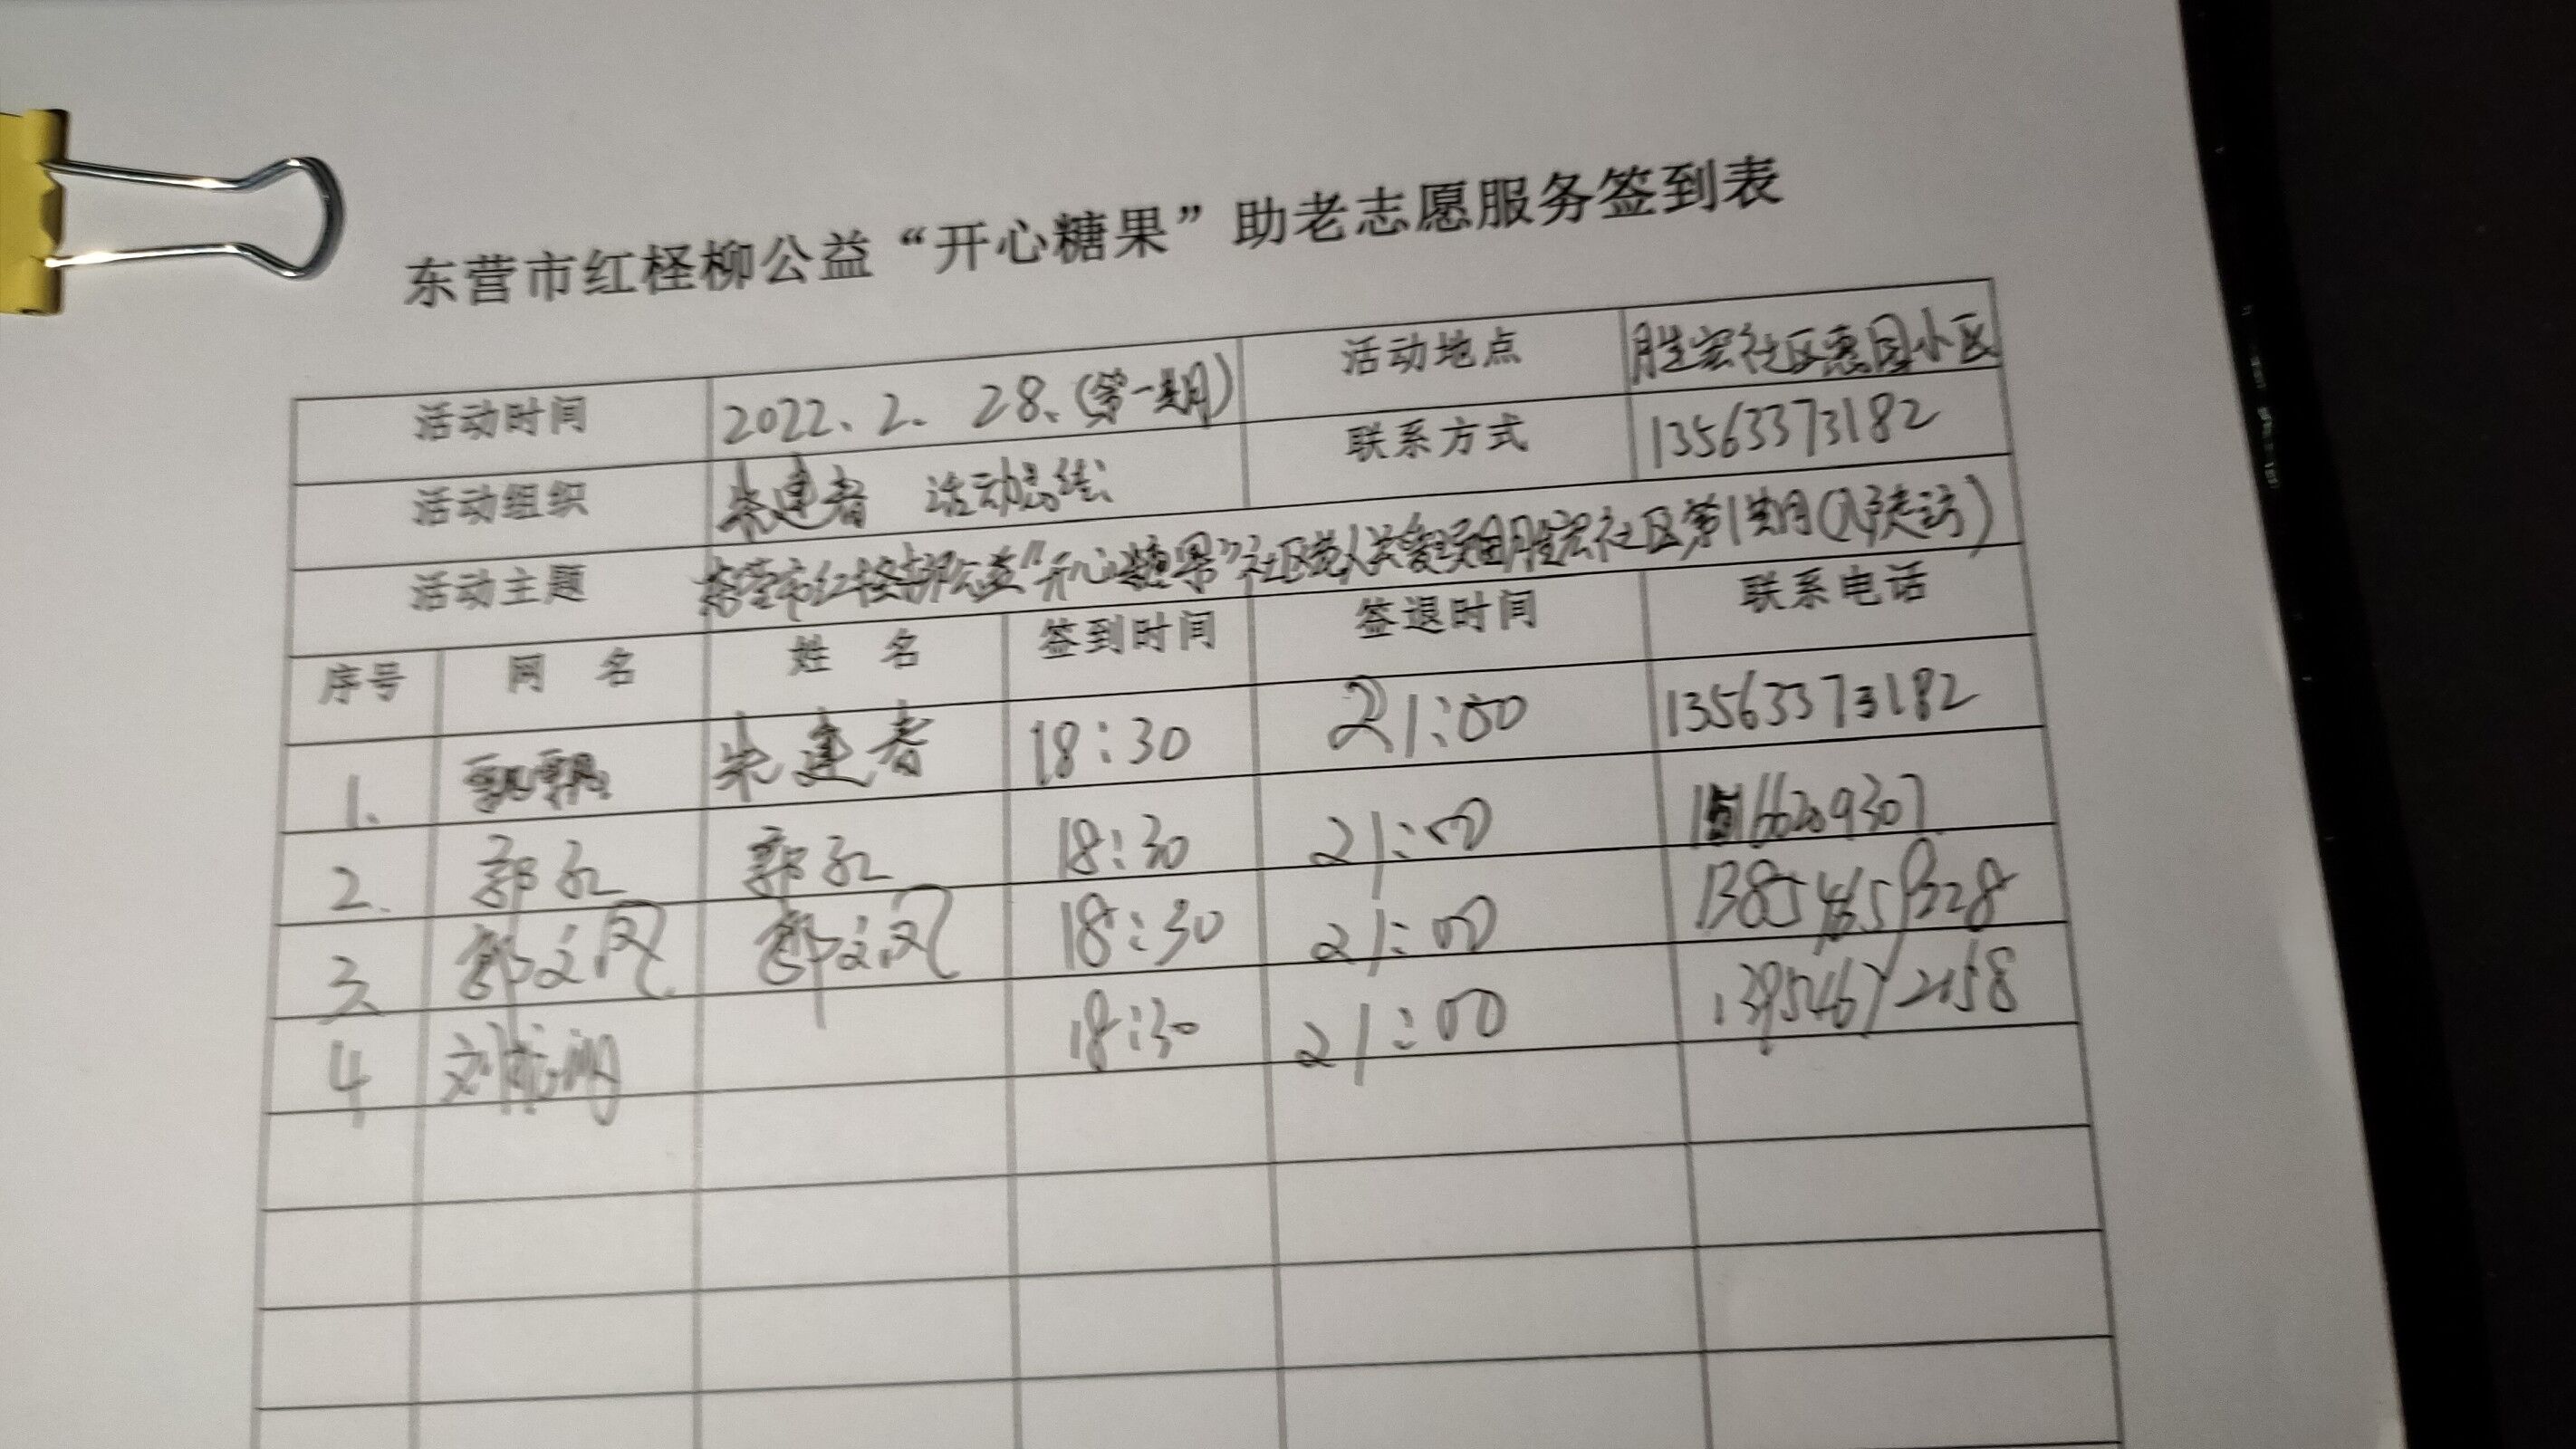 东营市红柽柳公益“开心糖果”助老志愿服务签到表
活动时间 2022.2.28.(第一期) 活动地点 胜宏社区惠园小区
活动组织 朱建春 活动总结 联系方式 13563373182
活动主题 东营市红柽柳公益“开心糖果”社区老人关爱项目胜宏社区第1期(入户走访)
序号 网名 姓名 签到时间 签退时间 联系电话
1. 飘飘 朱建春 18:30 21:00 13563373182
2. 郭红 郭红 18:30 21:00
3. 郭文凤 郭文凤 18:30 21:00
4 18:30 21:00